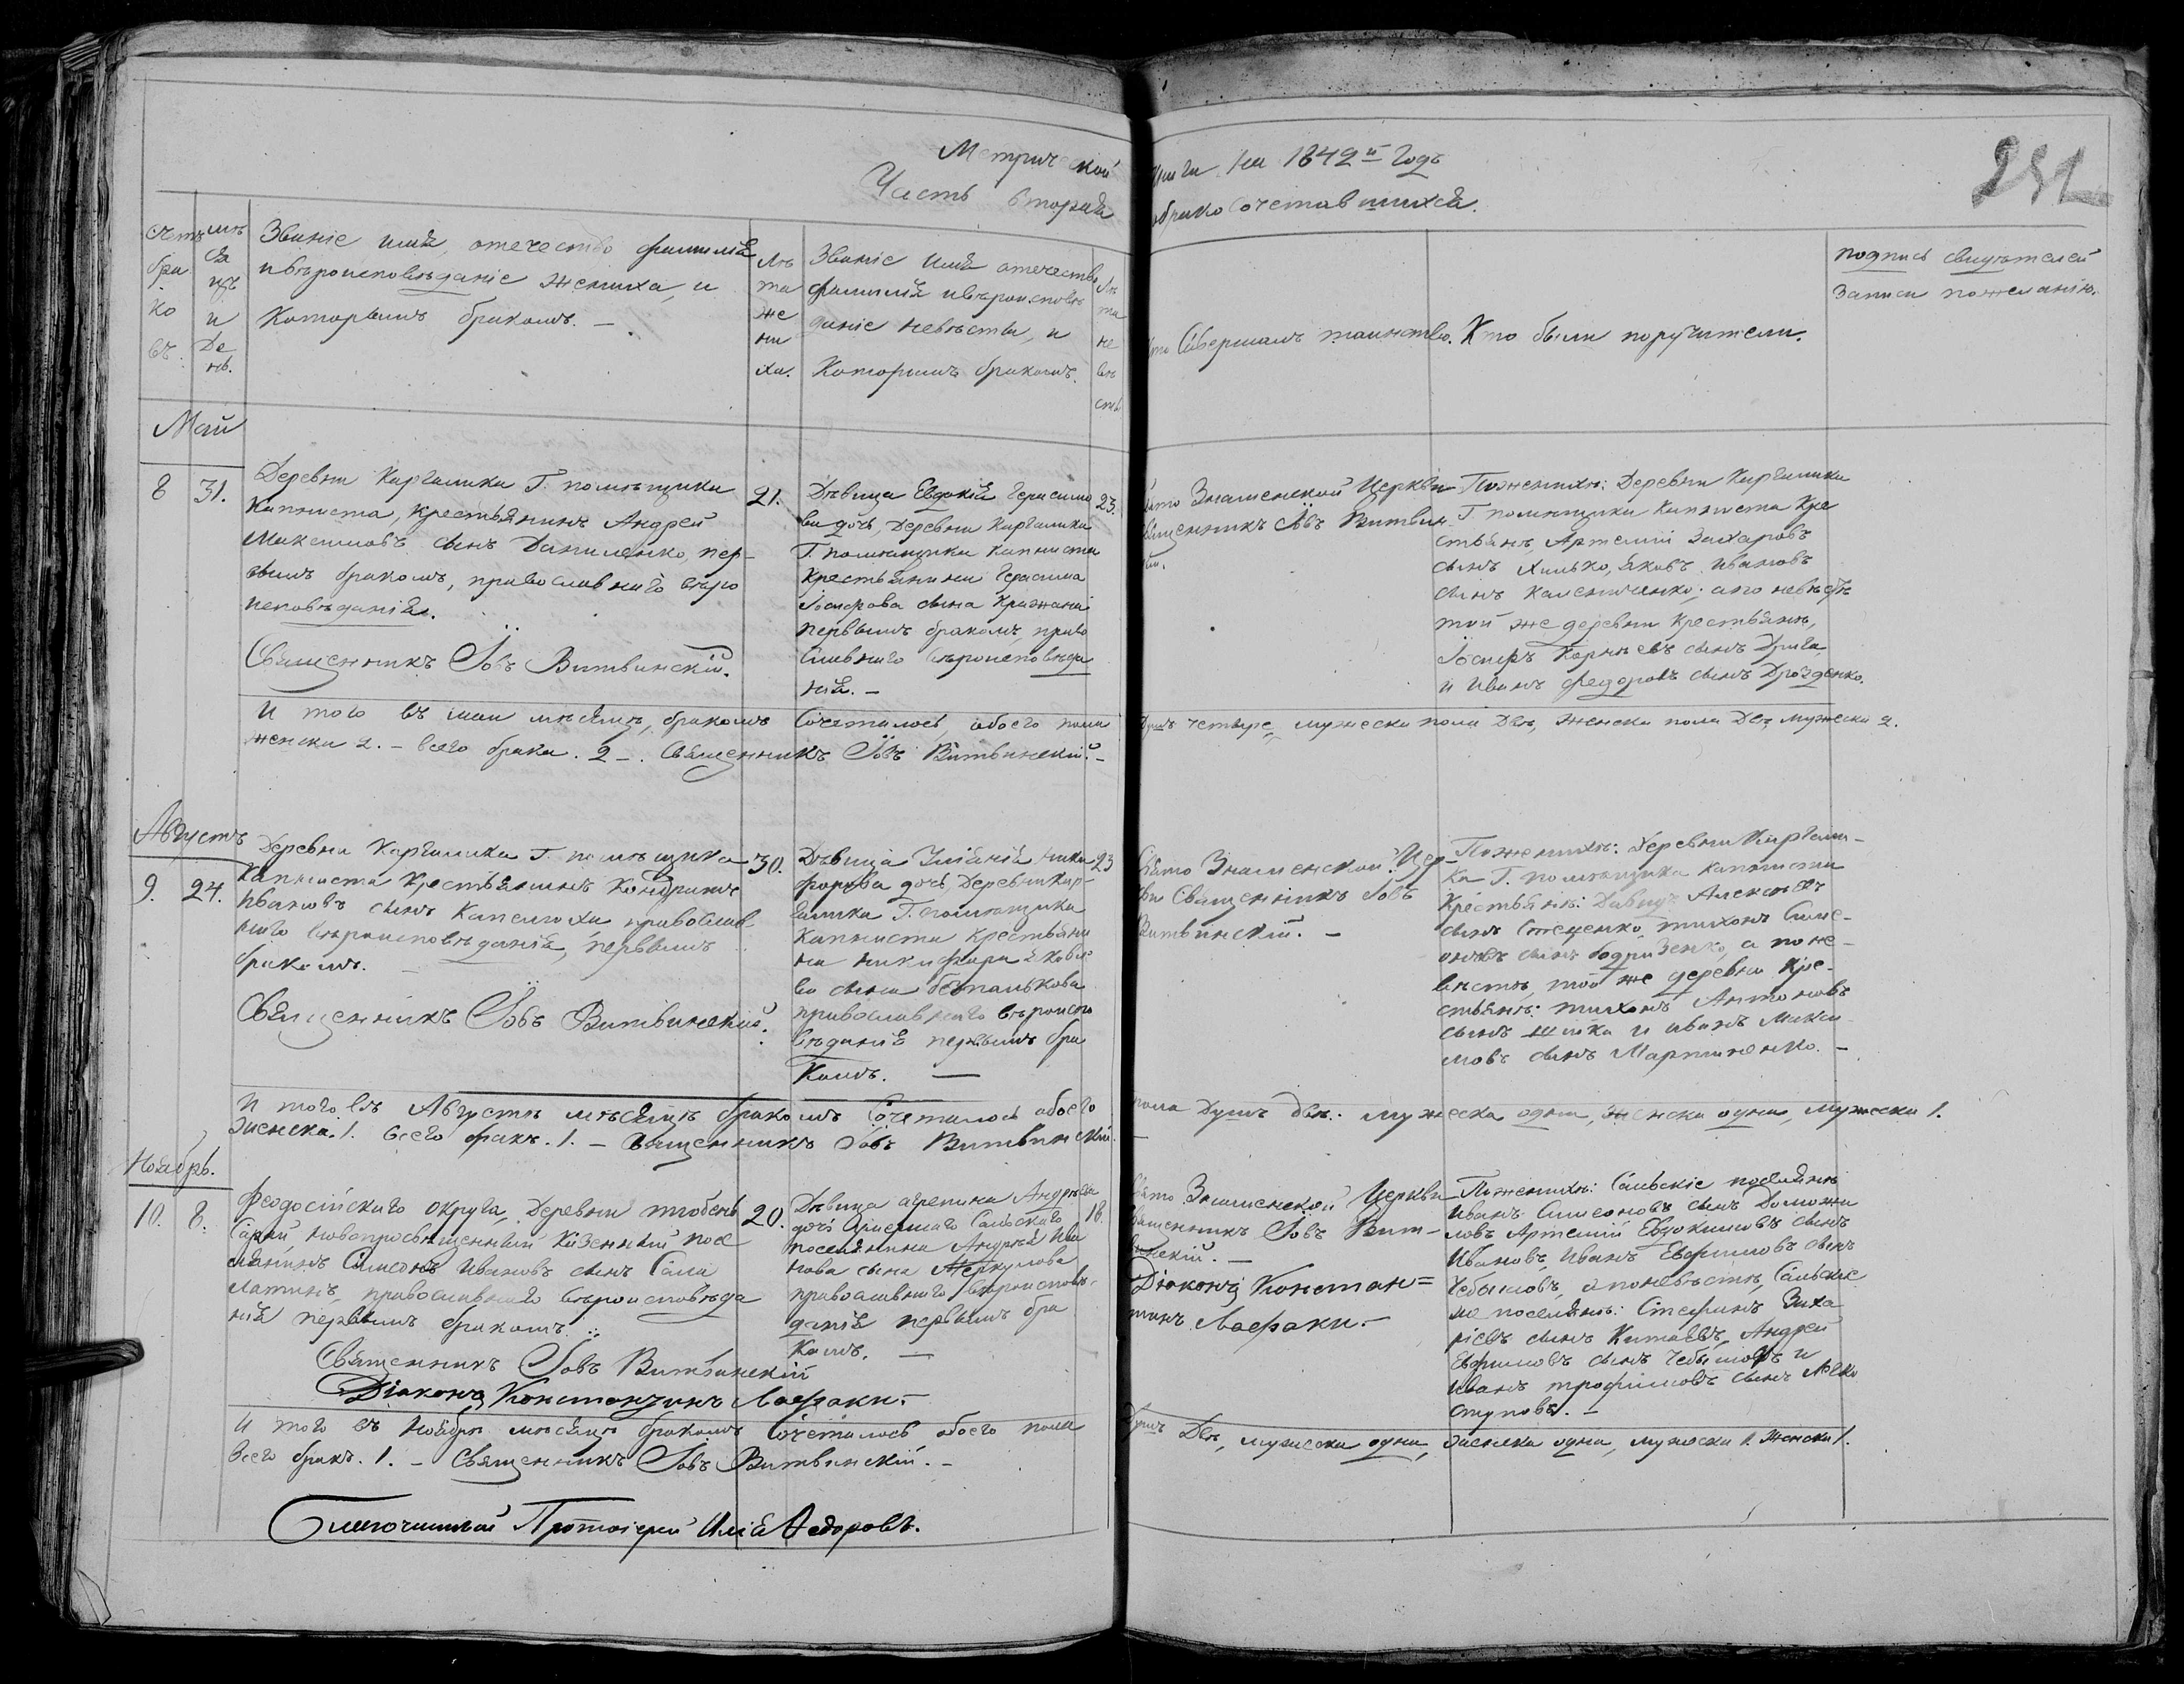 Метрической книги на 1842й Годъ
Часть вторая о бракосочетавшихся.
251
Счетъ бра ко въ.
мѣ ся цъ и Де нь.
Званіе имя, отечество фамилія
и вѣроисповѣданіе жениха, и
Которымъ бракомъ. –
Лѣ та же ни ха.
Званіе Имя отечество
фамилія и вѣроисповѣ
даніе невѣсты, и
Которымъ бракомъ.
Лѣ та не вѣ сты
Кто Совершалъ таинство.
Кто были поручители.
подпись свидѣтелей
записи по желанію.
Май
8 31.
Деревни Каргалика Г. помѣщика
Капниста, крестьянинъ Андрей
Максимовъ сынъ Даниленко, пер-
вымъ бракомъ, православнаго вѣро
исповѣданія.
Священникъ Іовъ Витвинскій.
21.
Дѣвица Евдокія Герасимо
ва дочь, Деревни Каргалика
Г. помѣщика Капниста
Крестьянина Герасима
Іосифова сына Крижана
первымъ бракомъ, право
славнаго вѣроисповѣда
нія. –
23.
Свято Знаменской Церкви
Священникъ Іовъ Витвин
скій.
По женихѣ: Деревни Каргалика
Г помѣщика Капниста Кре
стьянъ, Артемій Захаровъ
сынъ Хилько, Яковъ Ивановъ
сынъ Калениченко; а по невѣстѣ
той же деревни Крестьянъ,
Іосифъ Корнѣевъ сынъ Дрига
и Иванъ Федоровъ сынъ Дрозденко.
И того въ маи мѣсяцѣ, бракомъ Сочеталось, обоего пола Душъ четыре, мужеска пола Двѣ, женска пола Двѣ, мужеска 2.
женска 2. – всего брака. 2 –. Священникъ Іовъ Витвинскій. –
Августъ
9. 24.
Деревни Каргалика Г. помѣщика
Капниста Крестьянинъ Кондратъ
Ивановъ сынъ Капелюха православ-
наго вѣроисповѣданія, первымъ
бракомъ.
Священникъ Іовъ Витвинскій.
30.
Дѣвица Уліанія Ники
форова дочь, Деревни Кар-
галика Г. помѣщика
Капниста Крестьяни
на Никифора Яковле
ва сына
православнаго вѣроиспо
вѣданія первымъ бра
комъ. —
23
Свято Знаменской Цер-
кви Священникъ Іовъ
Витвинскій. –
По женихѣ: Деревни Каргали-
ка Г. помѣщика Капниста
Крестьянъ: Давидъ Алексѣевъ
сынъ Стеценко, Тихонъ Симе-
оновъ сынъ а по не-
вѣстѣ, той же деревни Кре-
стьянъ: Тихонъ Антоновъ
сынъ и Иванъ Макси
мовъ сынъ Мартиненко. –
И того въ Августѣ мѣсяцѣ бракомъ Сочеталось обоего пола Душъ двѣ: мужеска одна, женска одна, мужеска 1.
женска. 1. всего бракъ. 1. – Священникъ Іовъ Витвинскій.
Ноябрь.
10. 8.
Феодосійскаго округа, Деревни
Сарай новопросвѣщенный Казенный посе
лянинъ Симеонъ Ивановъ сынъ Сала
матинъ, православнаго вѣроисповѣда
нія первымъ бракомъ.
Священникъ Іовъ Витвинскій
Діаконъ Константинъ Ласфаки. –
20.
Дѣвица Агрепина Андрѣева
дочь Сальскаго
поселянина Андрѣя Ива
нова сына Меркулова
православнаго вѣроисповѣ-
данія первымъ бра
комъ. —
18.
Свято Знаменской Церкви
Священникъ Іовъ Вит-
винскій. –
Діаконъ Констан=
тинъ Ласфаки. –
По женихѣ: Сальскіе поселянѣ
Иванъ Симеоновъ сынъ Доможи
ловъ Артемій Евдокимовъ сынъ
Ивановъ, Иванъ Евфимовъ сынъ
Чебышовъ, а по невѣстѣ, Сальскіе
же поселянѣ: Стефанъ Заха
ріевъ сынъ Китаевъ, Андрей
Евфимовъ сынъ Чебышовъ и
Иванъ Трофимовъ сынъ
И того въ Ноябрѣ мѣсяцѣ бракомъ Сочеталось обоего пола Душъ Двѣ, мужеска одна, женска одна, мужеска 1. женска 1.
всего бракъ. 1. – Священникъ Іовъ Витвинскій. –
Благочинный Протоіерей Илія Федоровъ.